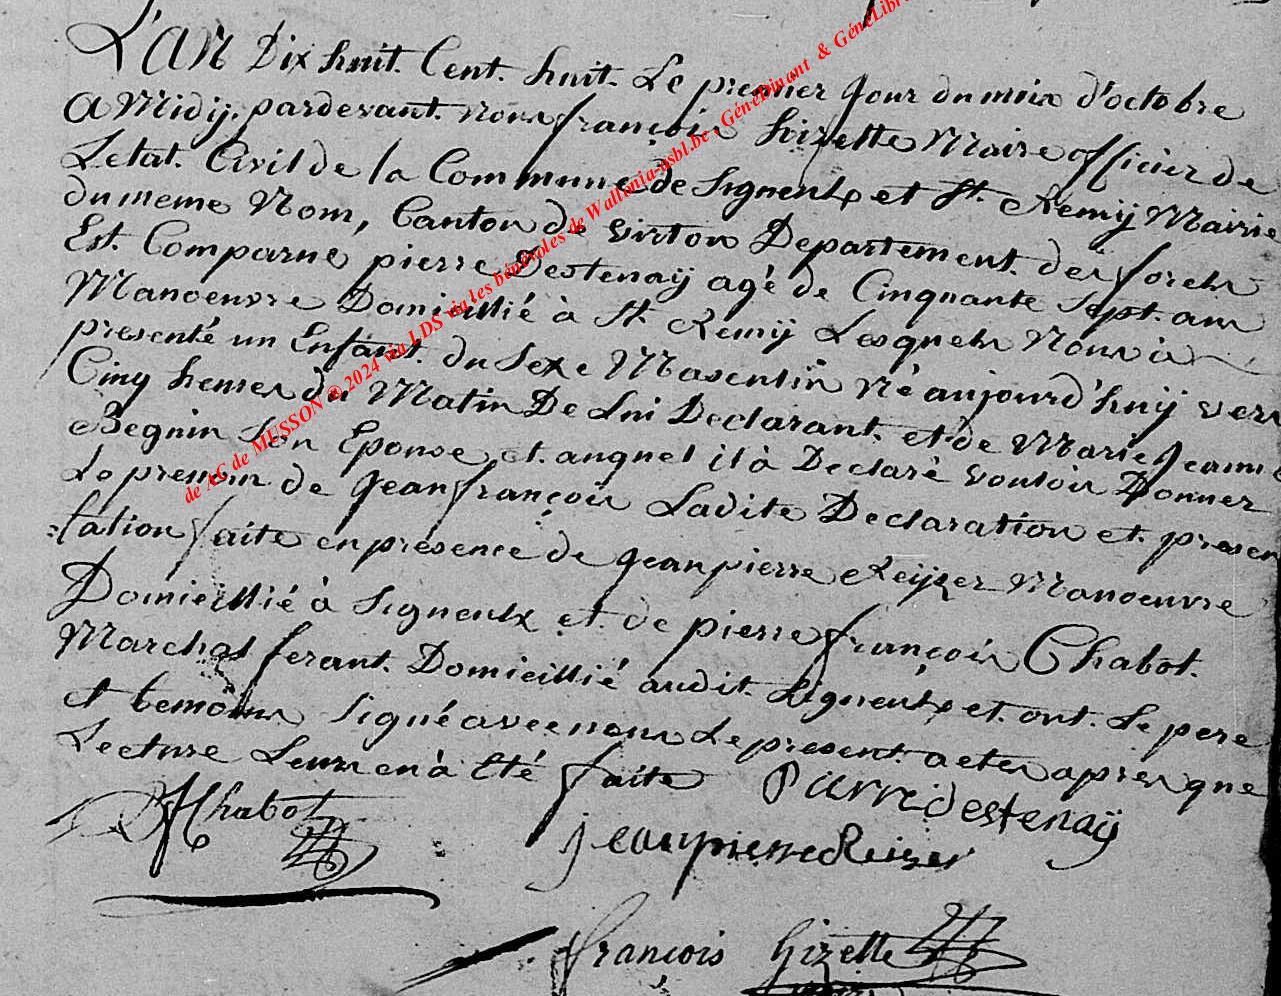 L'an Dix huit. Cent. huit. Le premier Jour du mois d'octobre
a Midij. pardevant. nous françois hizette Maire officier de
Letat. Civil de la Commune de Signeulx et St. Remij Mairie
du meme Nom, Canton de virton Departement. des forets
Est. Comparue pierre Destenaij agé de Cinquante Sept. ans
Manoeuvre Domicillié à St. Remij Lesquels Nous à
presenté un Enfant. du Sexe Masculin né aujourd'huij vers
Cinq heures du Matin De Lui Declarant. et de Marie Jeanne
Begnin Son Epouse et. auquel il à Declaré vouloir Donner
Le prenom de Jean françois Ladite Declaration et. presen
:tation faite en presence de Jean pierre Reijser Manoeuvre
Domicillié à Signeulx et. de pierre françois Chabot.
Marchal ferant. Domicillié audit. Signeulx et. ont. Le pere
et temoins Signé avec nous Le present. actes apres que
Lecture Leurs en à Eté faite Pierre destenaij
PF Chabot
jean pierre Reiser
françois hizette
maire
de AC de MUSSON ® 2024 via LDS via les bénévoles de Wallonia-asbl.be - GénéDinant & GénéLibr